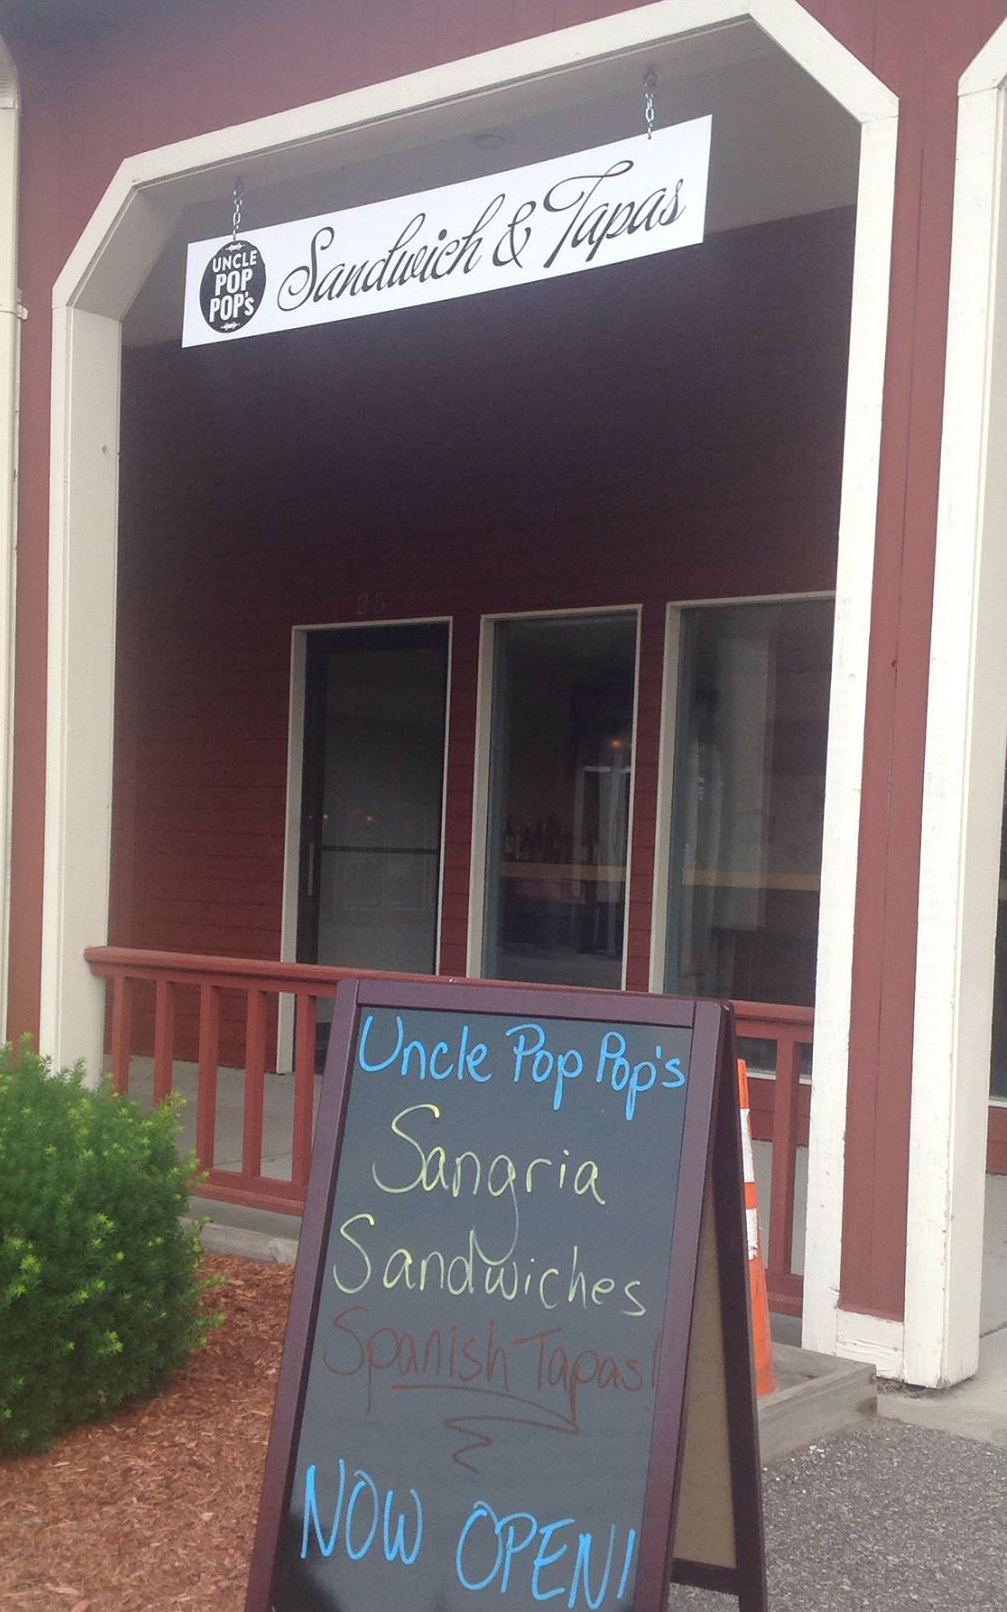 UNCLE
POP
POP's
Sandwich & Tapas
25
Uncle Pop Pop's
Sangria
Sandwiches
Spanish Tapas!
NOW OPEN!